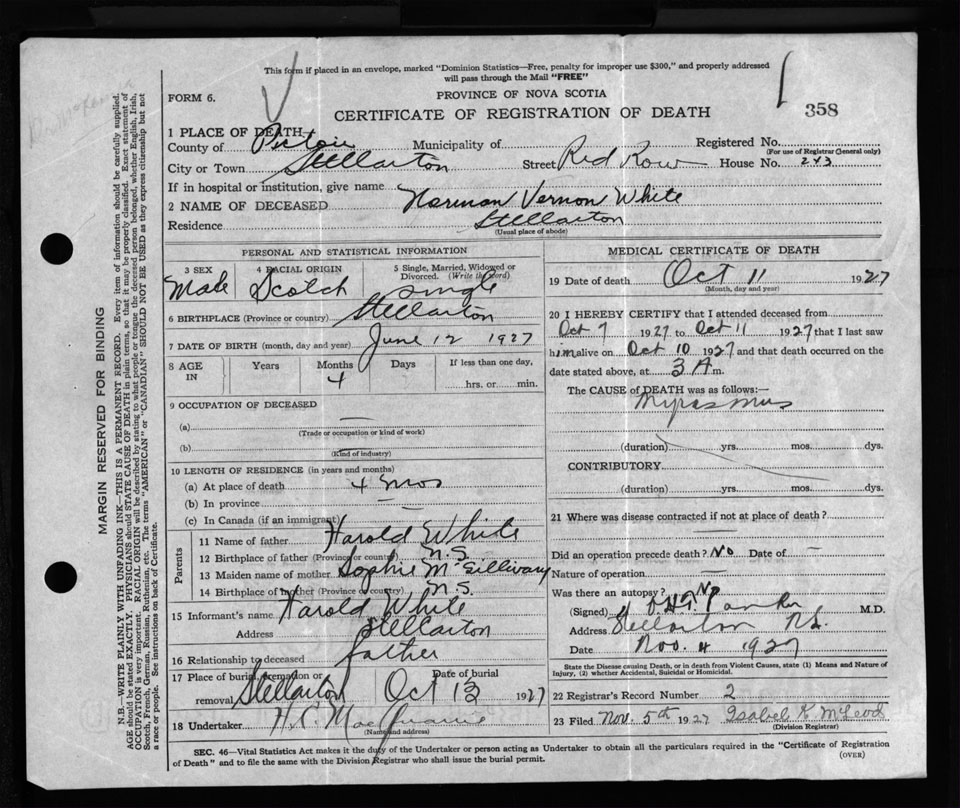 This form if placed in an envelope, marked "Dominion Statistics—Free, penalty for improper use $300," and properly addressed
will pass through the Mail "FREE"
FORM 6.
PROVINCE OF NOVA SCOTIA
CERTIFICATE OF REGISTRATION OF DEATH
358
1 PLACE OF DEATH—
County of Pictou Municipality of Registered No.
(For use of Registrar General only)
City or Town Stellarton Street Red Row House No. 243
If in hospital or institution, give name
2 NAME OF DECEASED Norman Vernon White
Residence Stellarton
(Usual place of abode)
PERSONAL AND STATISTICAL INFORMATION
3 SEX 4 RACIAL ORIGIN 5 Single, Married, Widowed or Divorced. (Write the word)
Male Scotch Single
6 BIRTHPLACE (Province or country) Stellarton
7 DATE OF BIRTH (month, day and year) June 12 1927
8 AGE IN Years Months Days If less than one day,
4
hrs. or min.
9 OCCUPATION OF DECEASED
(a) —
(Trade or occupation or kind of work)
(b) —
(Kind of industry)
10 LENGTH OF RESIDENCE (in years and months)
(a) At place of death 4 mos
(b) In province —
(c) In Canada (if an immigrant)
Parents
11 Name of father Harold White
12 Birthplace of father (Province or country) N.S.
13 Maiden name of mother Sophie McGillivary
14 Birthplace of mother (Province or country) N.S.
15 Informant's name Harold White
Address Stellarton
16 Relationship to deceased father
17 Place of burial, cremation or removal Stellarton Date of burial Oct 13 1927
18 Undertaker H.R. MacQuarrie
(Name and address)
MEDICAL CERTIFICATE OF DEATH
19 Date of death Oct 11 1927
(Month, day and year)
20 I HEREBY CERTIFY that I attended deceased from
Oct 7 1927 to Oct 11 1927 that I last saw
him alive on Oct 10 1927 and that death occurred on the
date stated above, at 3 A m.
The CAUSE of DEATH was as follows:—
(duration) yrs. mos. dys.
CONTRIBUTORY
(duration) yrs. mos. dys.
21 Where was disease contracted if not at place of death?
Did an operation precede death? No Date of —
Nature of operation —
Was there an autopsy? No
(Signed) Parker M.D.
Address Stellarton N.S.
Date Nov. 4 1927
State the Disease causing Death, or in death from Violent Causes, state (1) Means and Nature of
Injury, (2) whether Accidental, Suicidal or Homicidal.
22 Registrar's Record Number 2
23 Filed Nov. 5th 1927 Isabel K McLeod
(Division Registrar)
SEC. 46—Vital Statistics Act makes it the duty of the Undertaker or person acting as Undertaker to obtain all the particulars required in the "Certificate of Registration
of Death" and to file the same with the Division Registrar who shall issue the burial permit.
(OVER)
MARGIN RESERVED FOR BINDING
N.B.—WRITE PLAINLY WITH UNFADING INK—THIS IS A PERMANENT RECORD. Every item of information should be carefully supplied.
AGE should be stated EXACTLY. PHYSICIANS should STATE CAUSE OF DEATH in plain terms, so that it may be properly classified. Exact statement of
OCCUPATION is very important. RACIAL ORIGIN will be described by stating to what people or tongue the deceased person belonged, whether English, Irish,
Scotch, French, German, Russian, Ruthenian, etc. The terms "AMERICAN" or "CANADIAN" SHOULD NOT BE USED as they express citizenship but not
a race or people. See instructions on back of Certificate.